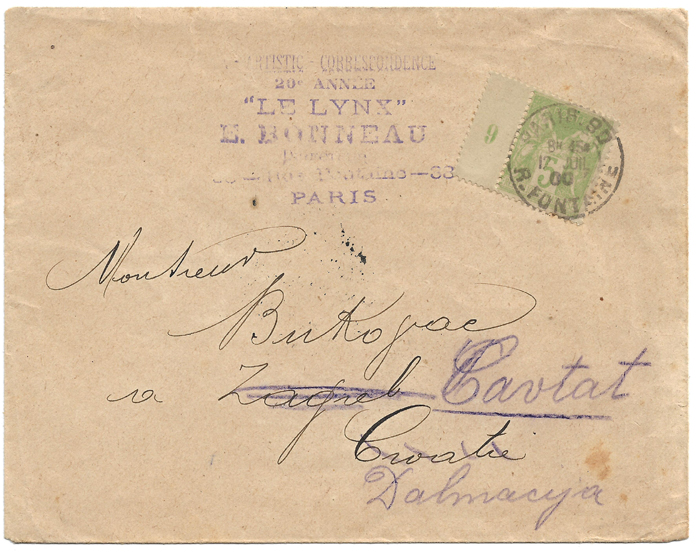 ARTISTIC - CORRESPONDENCE
20e ANNÉE
"LE LYNX"
E. BONNEAU
Rue Fontaine—38
PARIS
9
PARIS.90
8E 45
12 JUIL
00
R. FONTAINE
Monsieur
Bukovac
a Zagreb Cavtat
Croatie
Dalmacya